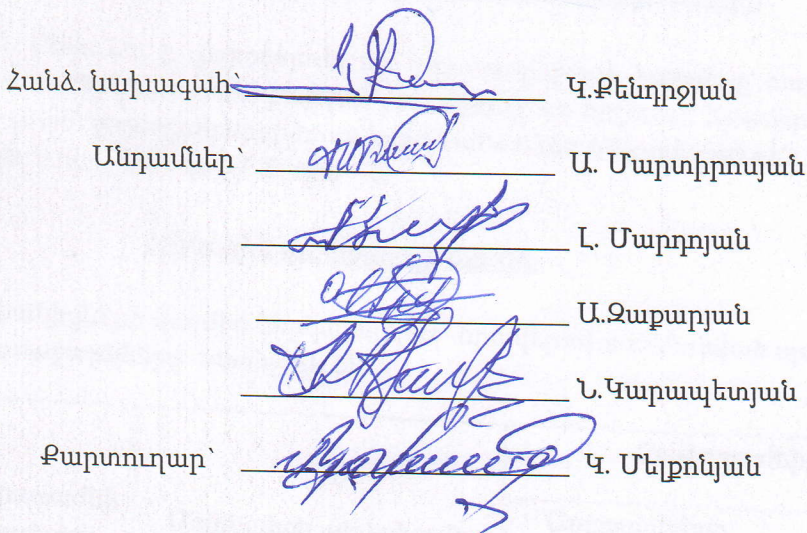 Հանձ. նախագահ՝ Կ.Քենդրջյան
Անդամներ՝ Ա. Մարտիրոսյան
Լ. Մարդոյան
Ա.Զաքարյան
Ն.Կարապետյան
Քարտուղար՝ Կ. Մելքոնյան